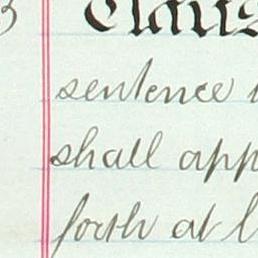 Claus
sentence
shall app
forth at l